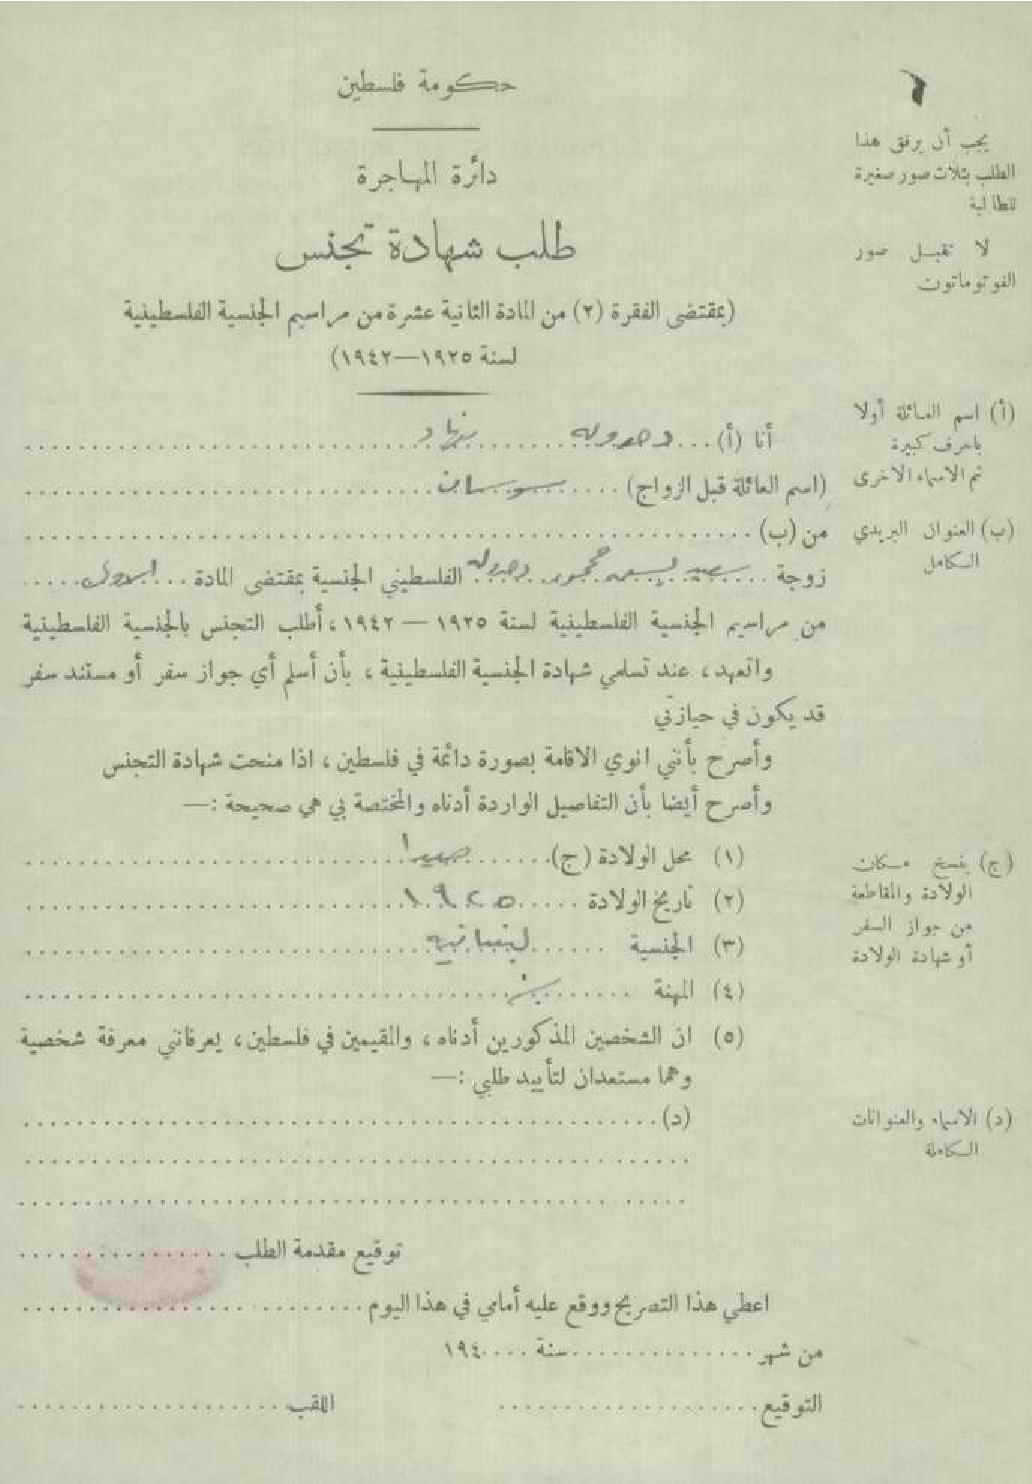 ٦
حكومة فلسطين
دائرة المهاجرة
طلب شهادة تجنس
(بمقتضى الفقرة (٢) من المادة الثانية عشرة من مراسيم الجنسية الفلسطينية
لسنة ١٩٢٥—١٩٤٢)
يجب أن يرفق هذا
الطلب بثلاث صور صغيرة
للطالبة
لا تقبل صور
الفوتوماتون
(أ) اسم العائلة أولا
باحرف كبيرة
ثم الاسماء الاخرى
(ب) العنوان البريدي
الكامل
أنا (أ)
(اسم العائلة قبل الزواج) سوسان
من (ب)
زوجة سعيد محمود الفلسطيني الجنسية بمقتضى المادة الاولى
من مراسيم الجنسية الفلسطينية لسنة ١٩٢٥—١٩٤٢، أطلب التجنس بالجنسية الفلسطينية
واتعهد، عند تسلمي شهادة الجنسية الفلسطينية، بأن أسلم أي جواز سفر أو مستند سفر
قد يكون في حيازتي
وأصرح بأنني انوي الاقامة بصورة دائمة في فلسطين، اذا منحت شهادة التجنس
وأصرح أيضا بأن التفاصيل الواردة أدناه والمختصة بي هي صحيحة :—
(١) محل الولادة (ج) صيدا
(٢) تاريخ الولادة ١٩٢٥
(٣) الجنسية لبنانيه
(٤) المهنة
(ج) ينسخ مكان
الولادة والمقاطعة
من جواز السفر
أو شهادة الولادة
(٥) ان الشخصين المذكورين أدناه، والمقيمين في فلسطين، يعرفانني معرفة شخصية
وهما مستعدان لتأييد طلبي :—
(د)
(د) الاسماء والعنوانات
الكاملة
توقيع مقدمة الطلب
اعطي هذا التصريح ووقع عليه أمامي في هذا اليوم
من شهر سنة ١٩٤٠
التوقيع اللقب